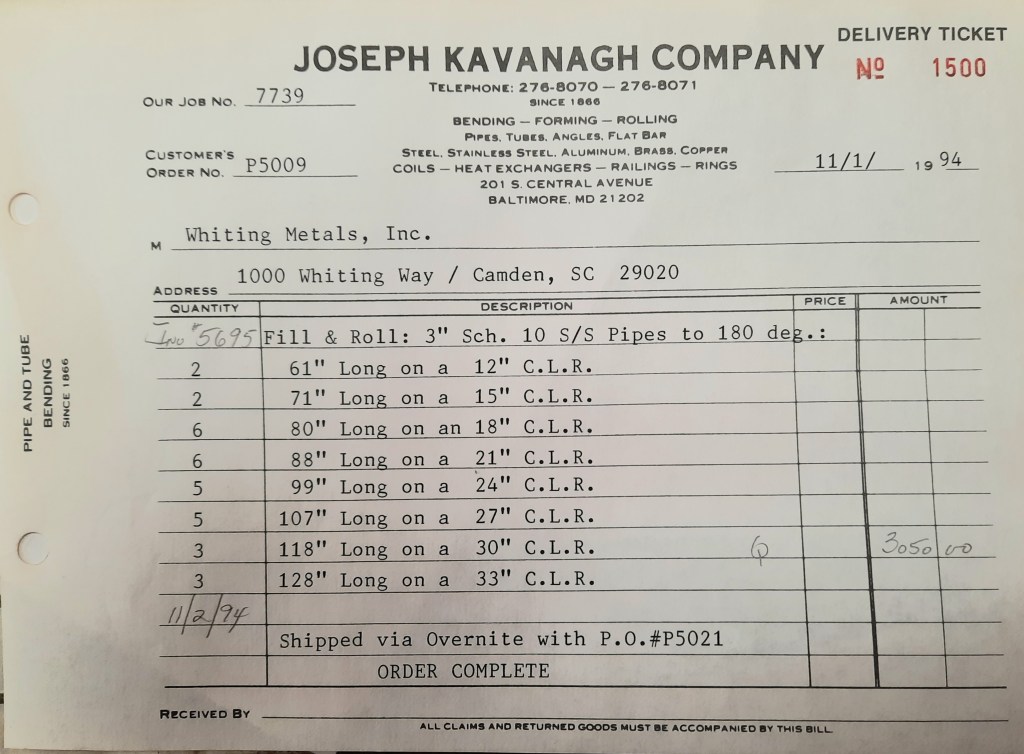 DELIVERY TICKET
JOSEPH KAVANAGH COMPANY
Nº 1500
TELEPHONE: 276-8070 — 276-8071
SINCE 1866
OUR JOB NO. 7739
BENDING — FORMING — ROLLING
PIPES, TUBES, ANGLES, FLAT BAR
STEEL, STAINLESS STEEL, ALUMINUM, BRASS, COPPER
CUSTOMER'S
ORDER NO. P5009
COILS — HEAT EXCHANGERS — RAILINGS — RINGS
11/1/ 19 94
201 S. CENTRAL AVENUE
BALTIMORE, MD 21202
M Whiting Metals, Inc.
ADDRESS 1000 Whiting Way / Camden, SC 29020
QUANTITY DESCRIPTION PRICE AMOUNT
Inv #5695 Fill & Roll: 3" Sch. 10 S/S Pipes to 180 deg.:
2 61" Long on a 12" C.L.R.
2 71" Long on a 15" C.L.R.
6 80" Long on an 18" C.L.R.
6 88" Long on a 21" C.L.R.
5 99" Long on a 24" C.L.R.
5 107" Long on a 27" C.L.R.
3 118" Long on a 30" C.L.R. 3050 00
3 128" Long on a 33" C.L.R.
11/2/94
Shipped via Overnite with P.O.#P5021
ORDER COMPLETE
RECEIVED BY
ALL CLAIMS AND RETURNED GOODS MUST BE ACCOMPANIED BY THIS BILL
PIPE AND TUBE
BENDING
SINCE 1866